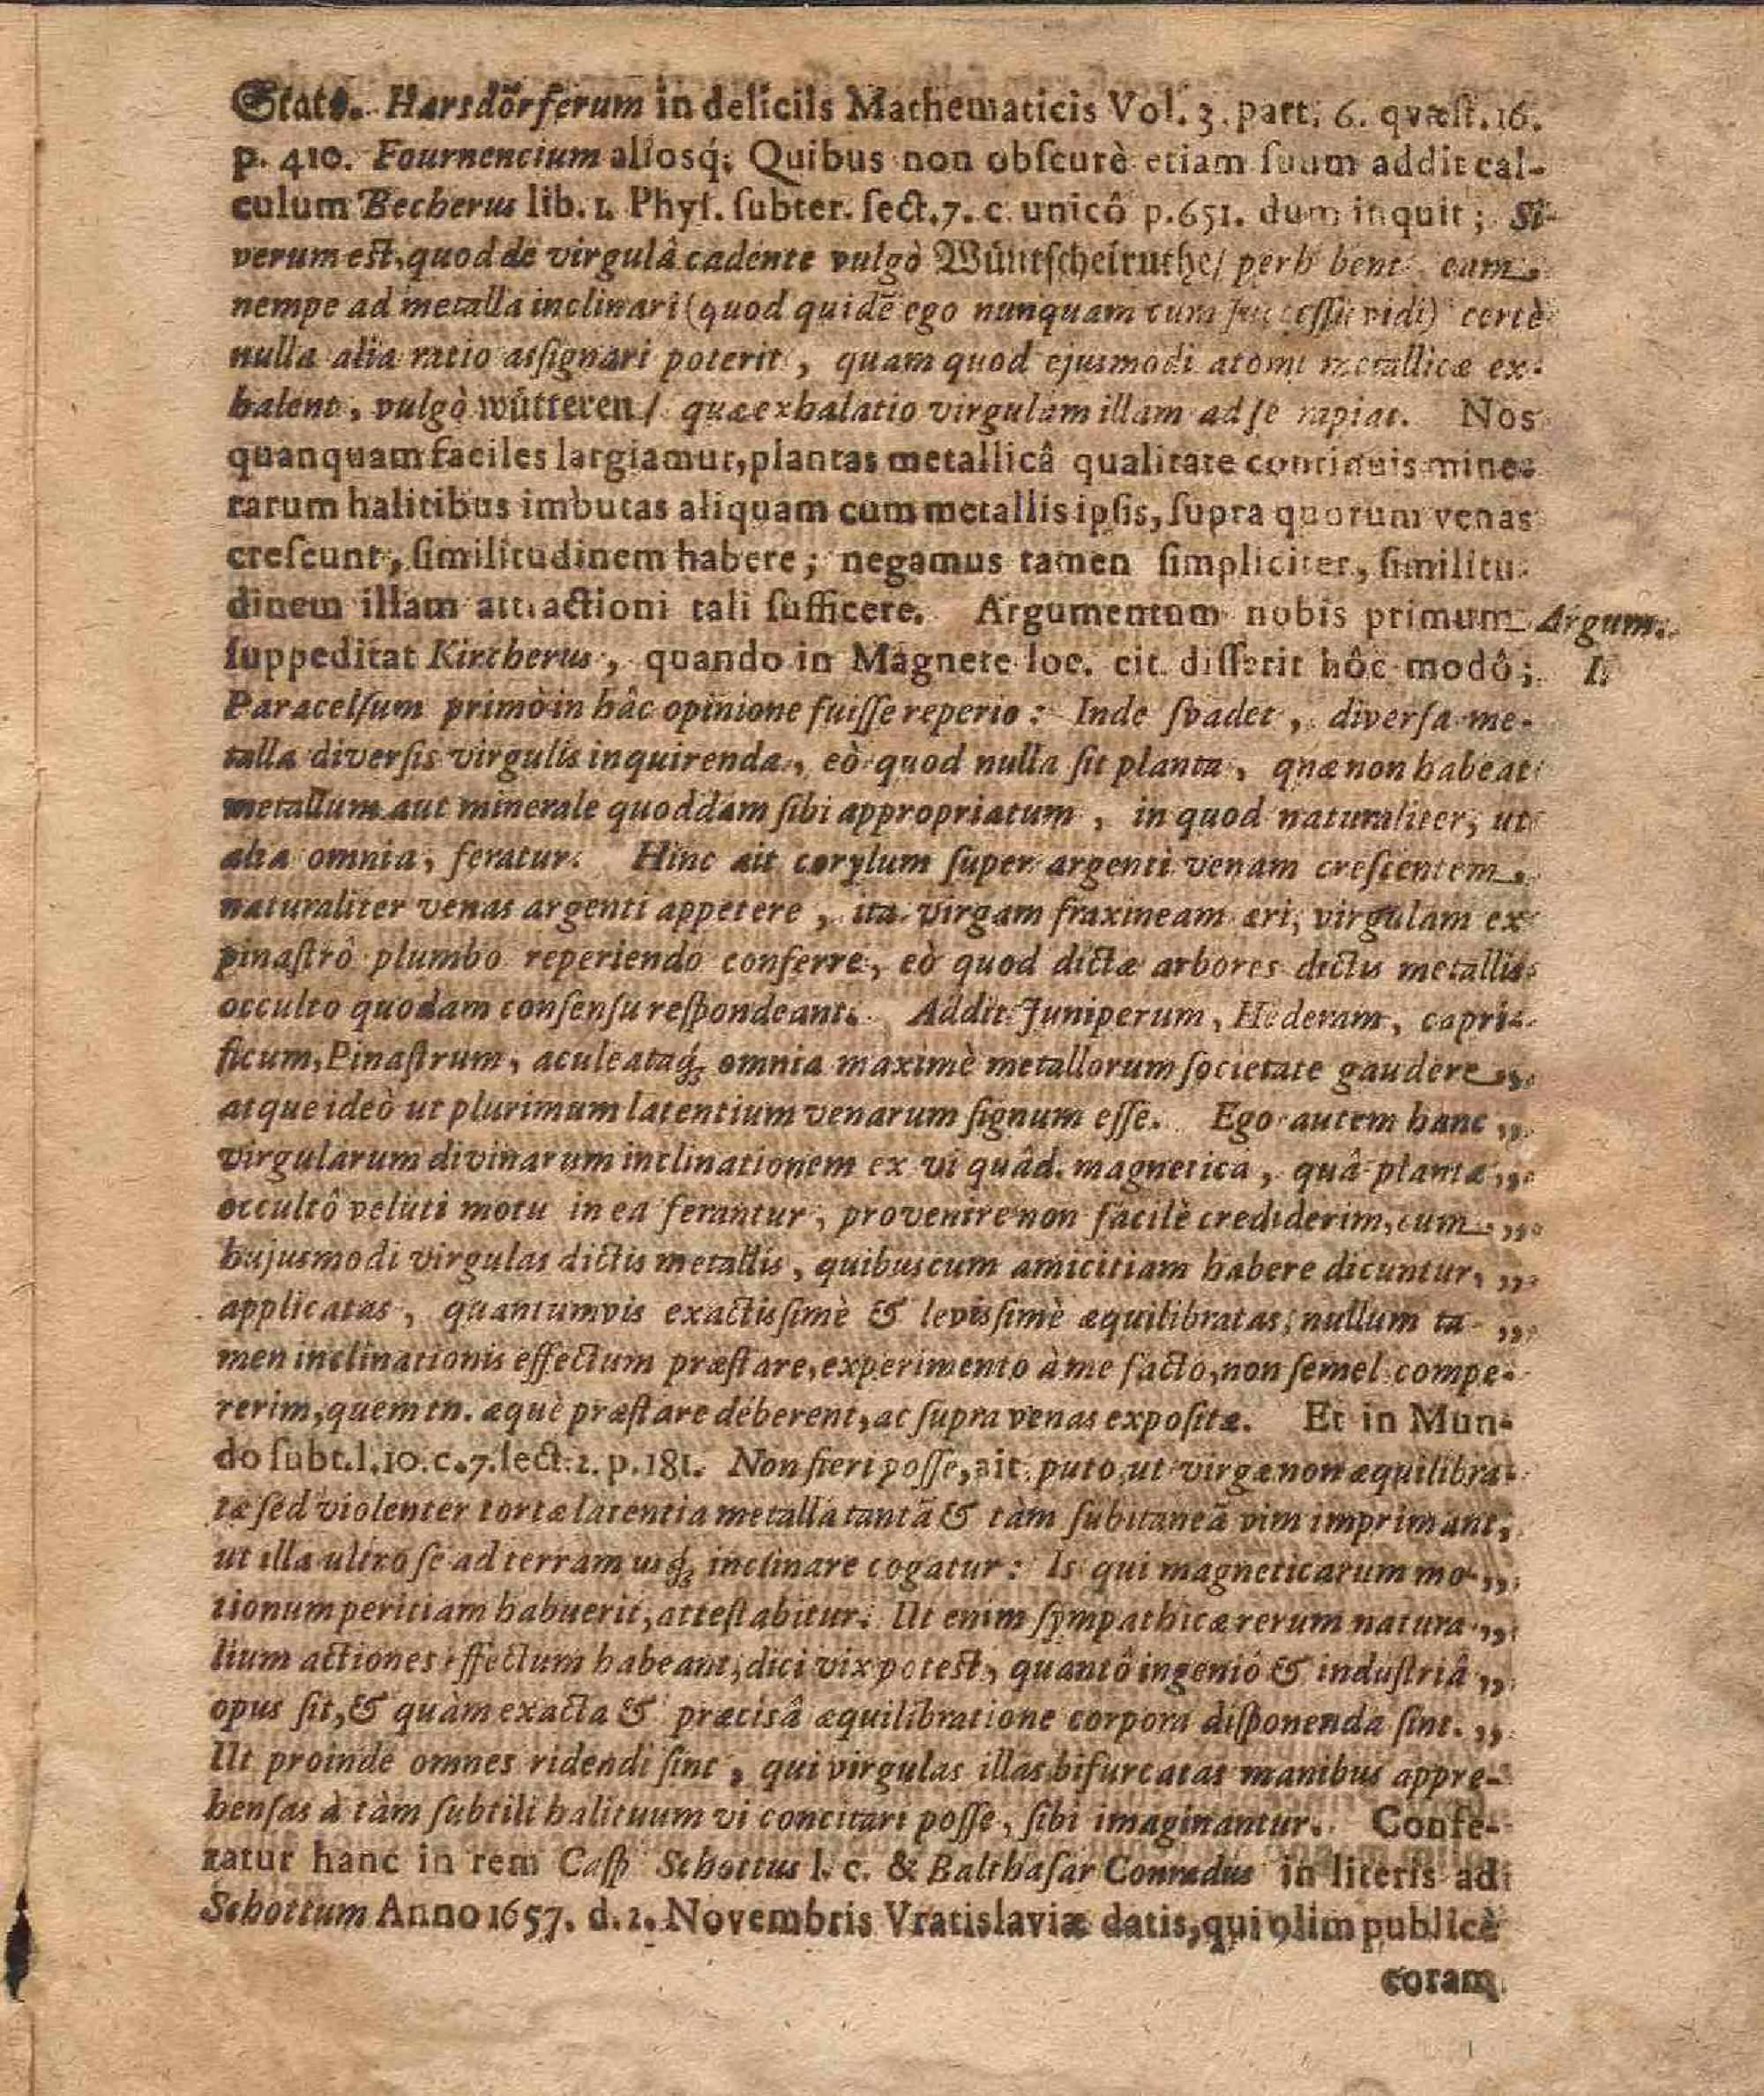 Staté. Harsdörferum in deliciis Mathematicis Vol. 3. part. 6. qvæst. 16.
p. 410. Fournencium aliosq́; Quibus non obſcurè etiam ſuum addit cal-
culum Becherus lib. 1. Phyſ. ſubter. ſect. 7. c. unicô p. 651. dum inquit; Si
verum eſt, quod de virgulâ cadente vulgò Wüntſchelruthe/ perhibent eam
nempe ad metalla inclinari (quod quidē ego nunquam cum ſucceſſu vidi) certè
nulla alia ratio aſſignari poterit, quam quod ejusmodi atomi metallicæ ex-
halent, vulgò wütteren/ quæ exhalatio virgulam illam ad ſe rapiat. Nos
quanquam faciles largiamur, plantas metallicâ qualitate continuis mine-
rarum halitibus imbutas aliquam cum metallis ipſis, ſupra quorum venas
creſcunt, ſimilitudinem habere; negamus tamen ſimpliciter, ſimilitu-
dinem illam attractioni tali ſufficere. Argumentum nobis primum Argum.
ſuppeditat Kircherus, quando in Magnete loc. cit. diſſerit hôc modô; I.
Paracelſum primò in hâc opinione fuiſſe reperio: Inde ſvadet, diverſa me-
talla diverſis virgulis inquirenda, eò quod nulla ſit planta, quæ non habeat
metallum aut minerale quoddam ſibi appropriatum, in quod naturaliter, ut
alia omnia, feratur. Hinc ait corylum ſuper argenti venam creſcentem
naturaliter venas argenti appetere, ita virgam fraxineam æri, virgulam ex
pinaſtrô plumbo reperiendo conferre, eò quod dictæ arbores dictis metallis
occulto quodam conſenſu reſpondeant. Addit Juniperum, Hederam, capri-
ficum, Pinaſtrum, aculeataq́; omnia maximè metallorum ſocietate gaudere „
atque ideò ut plurimum latentium venarum ſignum eſſe. Ego autem hanc „
virgularum divinarum inclinationem ex vi quâd. magnetica, quâ plantæ „
occultô veluti motu in ea ferantur, provenire non facilè crediderim, cum „
hujusmodi virgulas dictis metallis, quibuscum amicitiam habere dicuntur, „
applicatas, quantumvis exactiſſimè & leviſſimè æquilibratas, nullum ta- „
men inclinationis effectum præſtare, experimento à me facto, non ſemel compe-
rerim, quem tn. æquè præſtare deberent, ac ſupra venas expoſitæ. Et in Mun-
do ſubt. l. 10. c. 7. ſect. 2. p. 181. Non fieri poſſe, ait, puto, ut virgæ non æquilibra-
tæ ſed violenter tortæ latentia metalla tantā & tàm ſubitaneā vim imprimant,
ut illa ultro ſe ad terram usq́; inclinare cogatur: Is qui magneticarum mo- „
tionum peritiam habuerit, atteſtabitur. Ut enim ſympathicæ rerum natura- „
lium actiones effectum habeant, dici vix poteſt, quantô ingeniô & induſtriâ „
opus ſit, & quàm exacta & præcisâ æquilibratione corpora diſponenda ſint. „
Ut proinde omnes ridendi ſint, qui virgulas illas bifurcatas manibus appre-
henſas à tàm ſubtili halituum vi concitari poſſe, ſibi imaginantur. Confe-
ratur hanc in rem Caſp Schottus l. c. & Balthaſar Conradus in literis ad
Schottum Anno 1657. d. 2. Novembris Vratislaviæ datis, qui olim publicè
coram